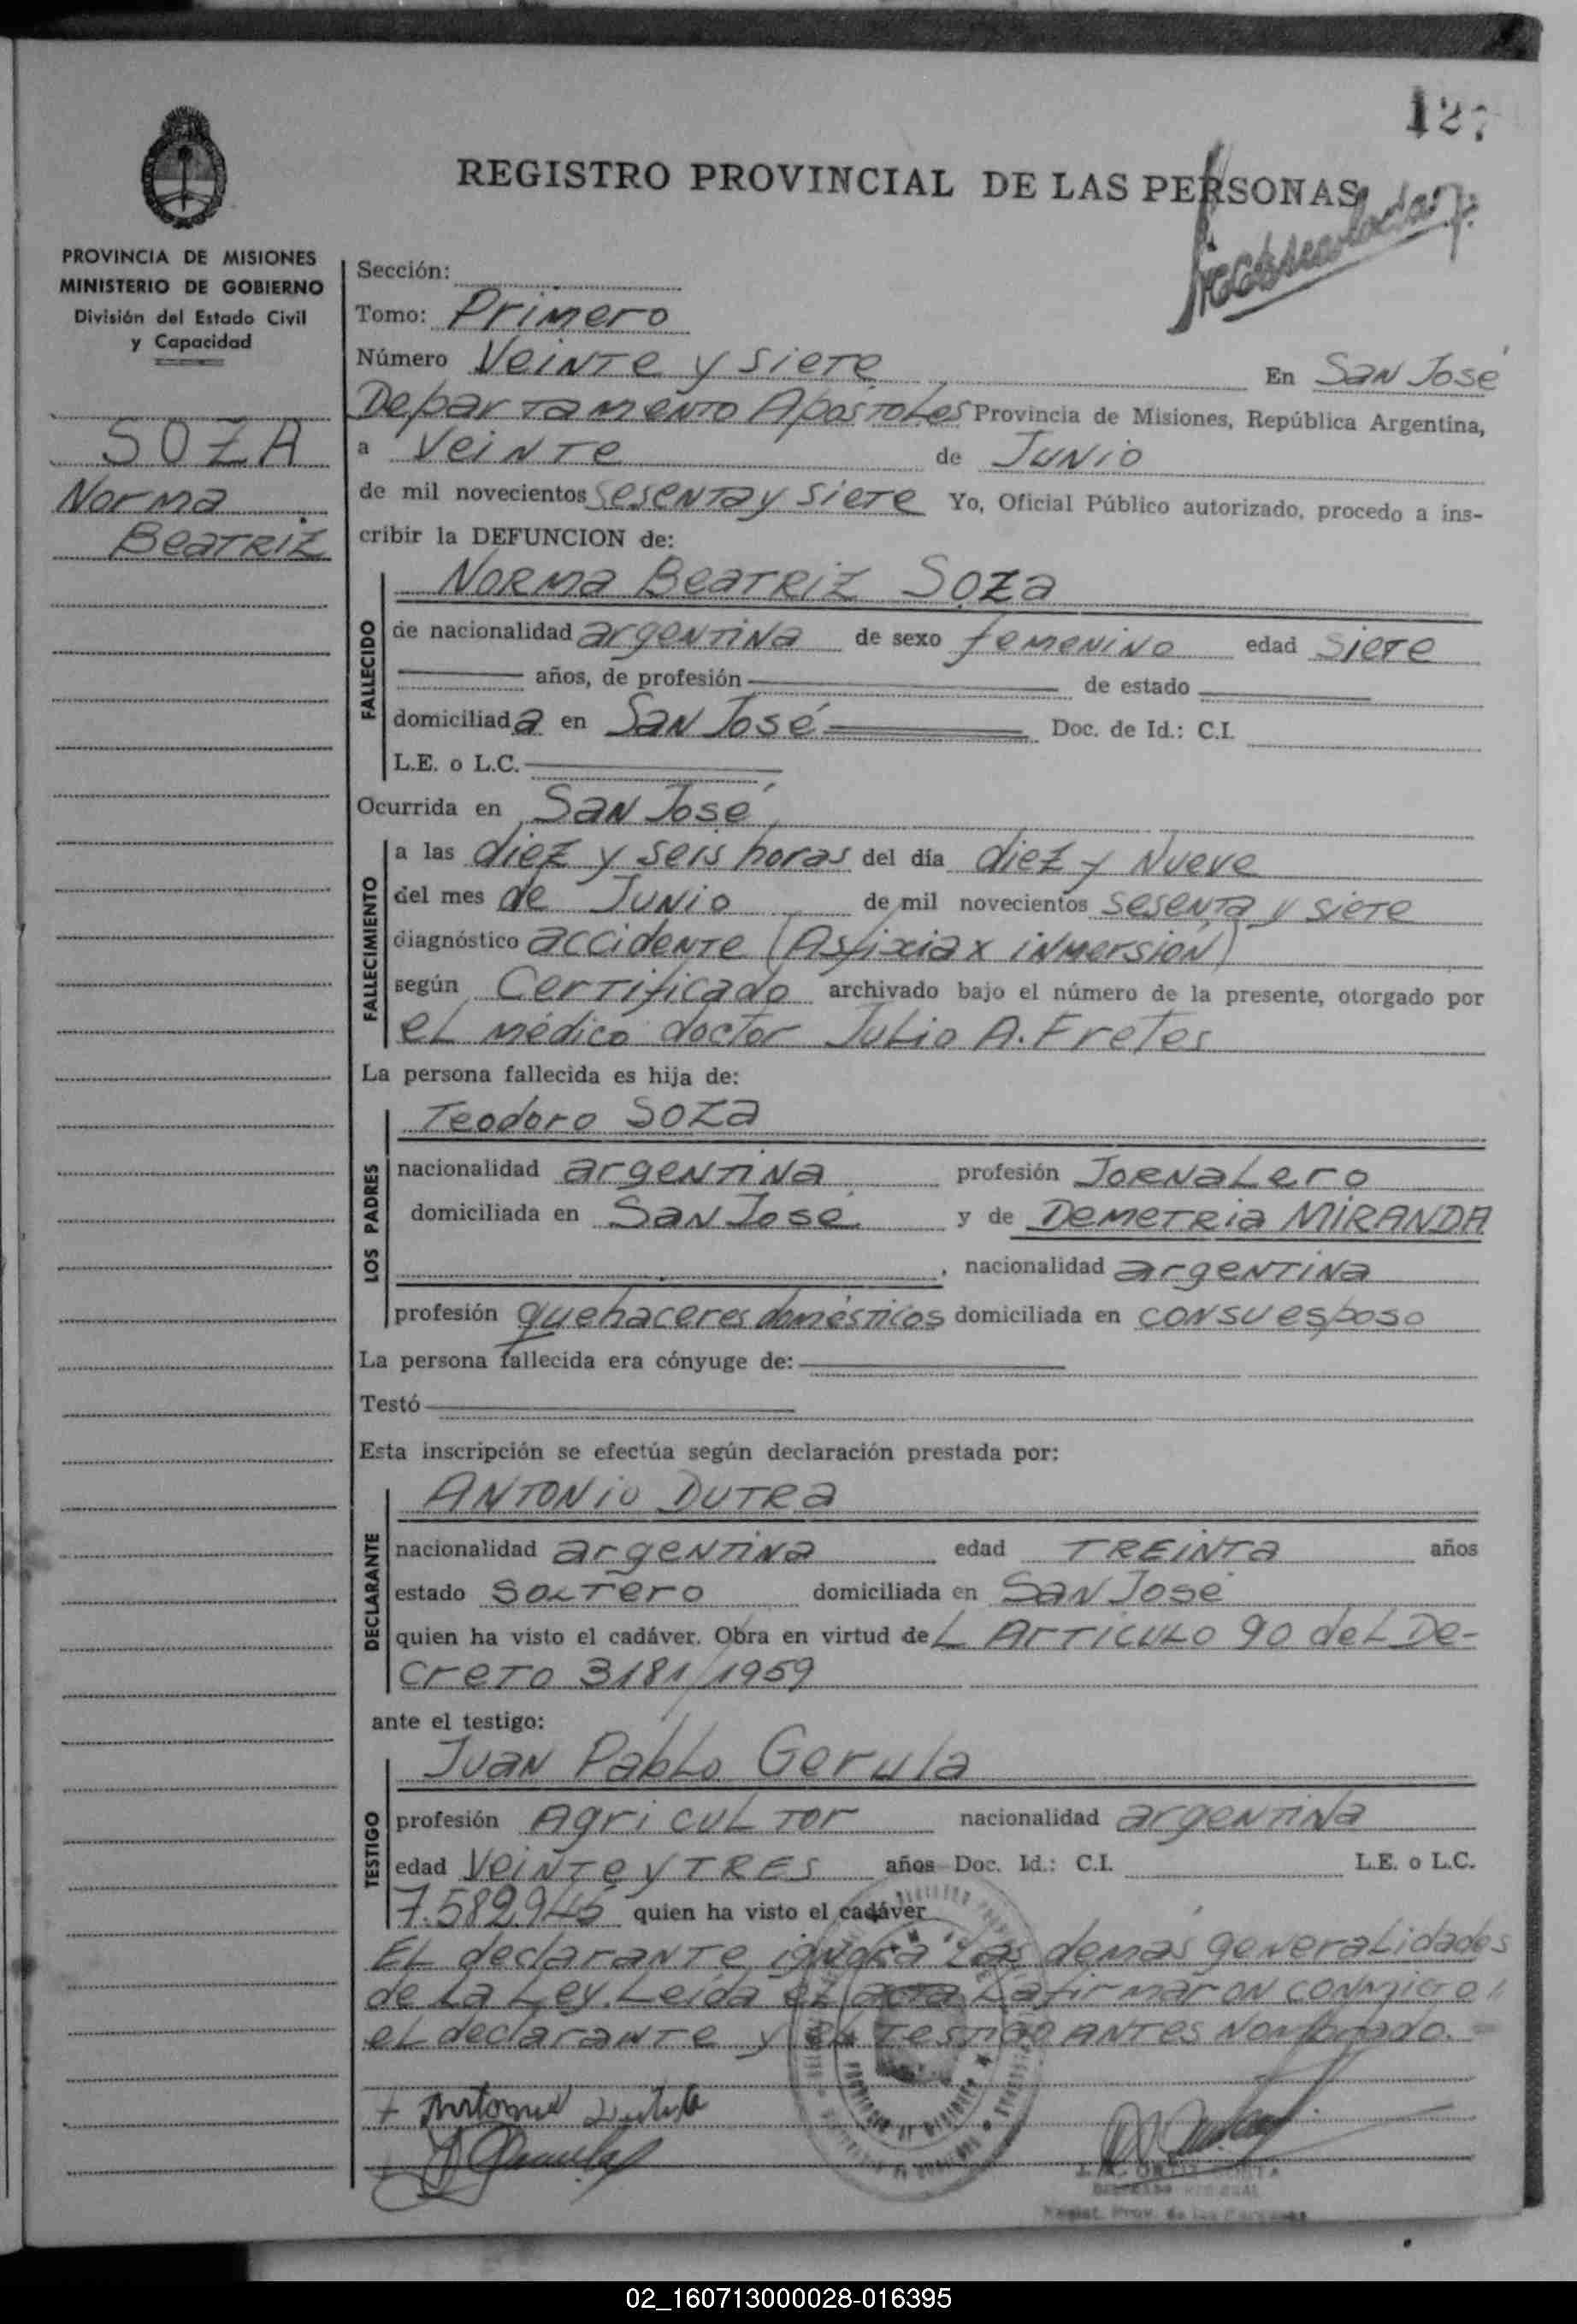 127
REGISTRO PROVINCIAL DE LAS PERSONAS
PROVINCIA DE MISIONES
MINISTERIO DE GOBIERNO
División del Estado Civil
y Capacidad
SOZA
Norma
Beatriz
Sección:
Tomo: Primero
Número Veinte y siete En San José
Departamento Apostoles Provincia de Misiones, República Argentina,
a Veinte de Junio
de mil novecientos sesenta y siete Yo, Oficial Público autorizado, procedo a ins-
cribir la DEFUNCION de:
FALLECIDO
Norma Beatriz Soza
de nacionalidad argentina de sexo femenino edad siete
años, de profesión de estado
domiciliada en San José Doc. de Id.: C.I.
L.E. o L.C.
Ocurrida en San José
FALLECIMIENTO
a las diez y seis horas del día diez y nueve
del mes de Junio de mil novecientos sesenta y siete
diagnóstico accidente (Asfixia x inmersión)
según Certificado archivado bajo el número de la presente, otorgado por
el médico doctor Julio A. Fretes
La persona fallecida es hija de:
LOS PADRES
Teodoro Soza
nacionalidad argentina profesión Jornalero
domiciliada en San José y de Demetria MIRANDA
, nacionalidad argentina
profesión quehaceres domésticos domiciliada en con su esposo
La persona fallecida era cónyuge de:
Testó
Esta inscripción se efectúa según declaración prestada por:
DECLARANTE
Antonio Dutra
nacionalidad argentina edad treinta años
estado soltero domiciliada en San José
quien ha visto el cadáver. Obra en virtud del Articulo 90 del De-
creto 3181/1959
ante el testigo:
TESTIGO
Juan Pablo Gerula
profesión Agricultor nacionalidad argentina
edad Veinte y tres años Doc. Id.: C.I. L.E. o L.C.
7.582.945 quien ha visto el cadáver
El declarante ignora las demás generalidades
de la Ley. Leída el acta la firmaron conmigo
el declarante y el testigo antes nombrado.
02_160713000028-016395